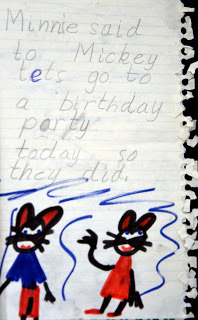 Minnie said
to Mickey
lets go to
a birthday
party
today so
they did.